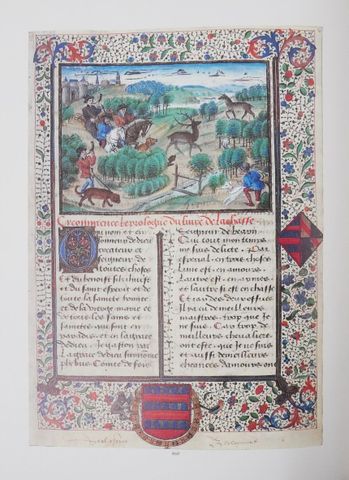 Cy commence le prologue du livre de la chasse
Ou nom et en
honneur de dieu
createur et
seigneur de
toutes choses
Et du benoist filz ihesus
et du saint esperit et de
toute la saincte trinite
et de la vierge marie et
de tous les sains et
sainctes qui sont en
paradis et en la grace
de dieu Je gaston par
la grace de dieu surnomme
phebus Conte de foix
Seigneur de bearn
Qui tout mon temps
me suis delite Par
especial en trois choses
lune est en armes
lautre est en amours
et lautre si est en chasse
Et car des deux offices
il ya eu de meilleurs
maistres trop que je
ne suis Car trop de
meilleurs chevaliers
ont este que je ne suis
et aussi de meilleures
cheances damours ont